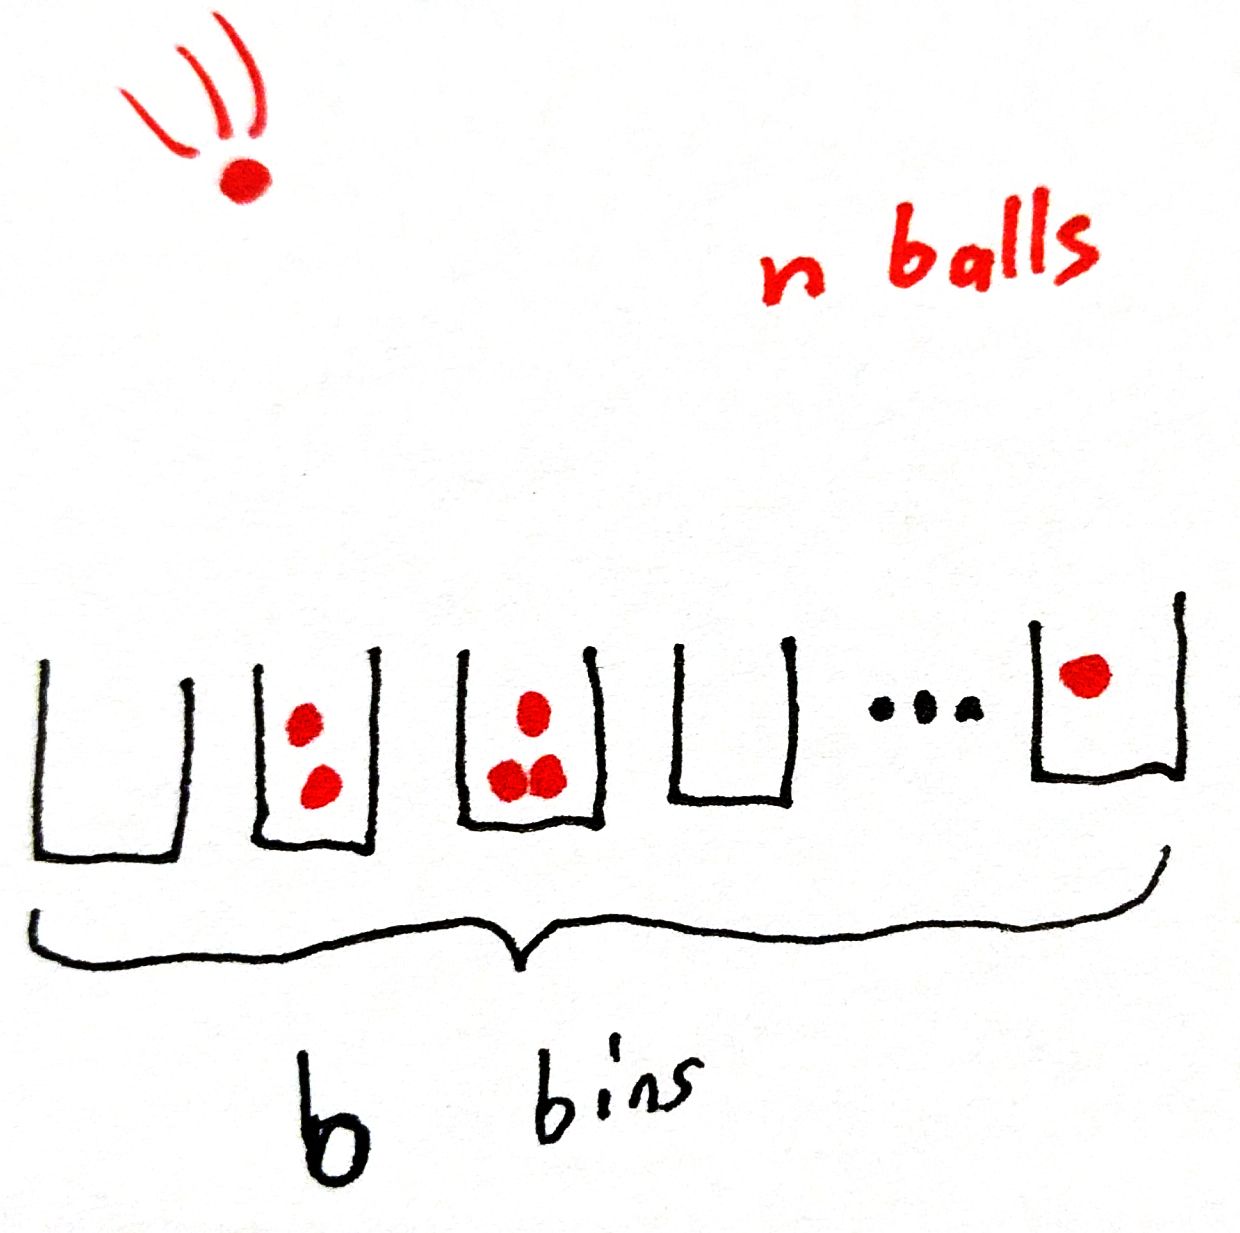 n balls
b bins